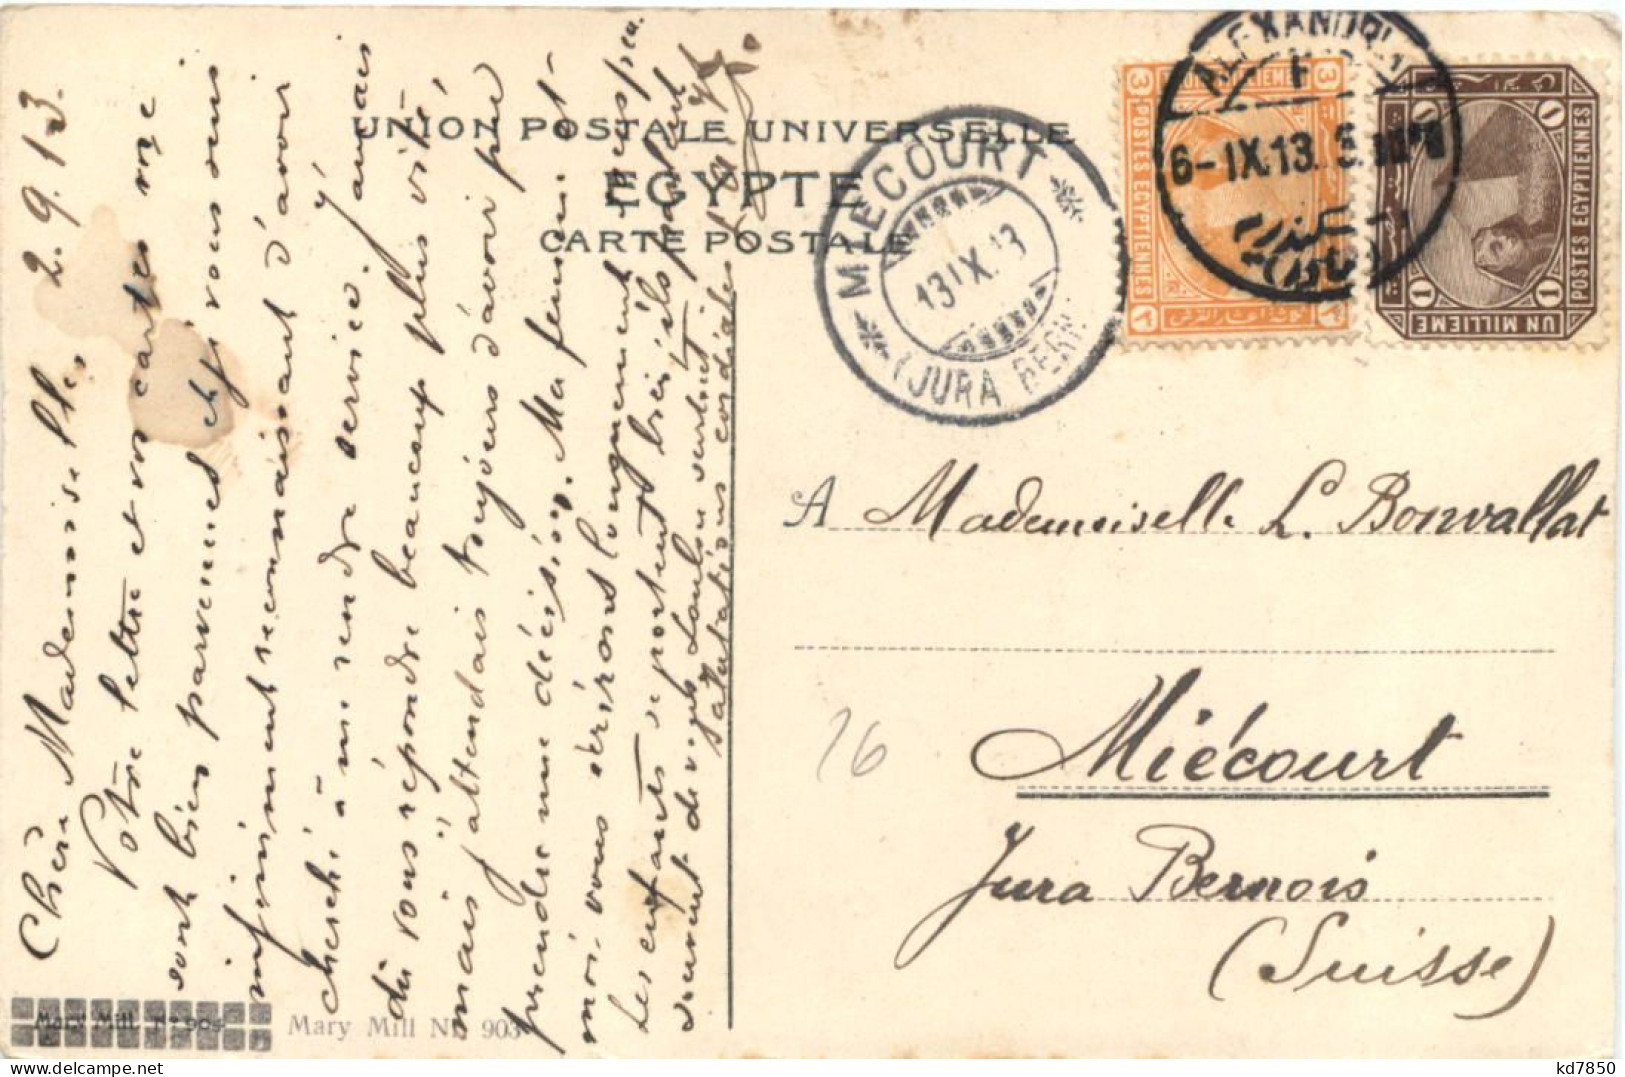 UNION POSTALE UNIVERSELLE
EGYPTE
CARTE POSTALE
MIÉCOURT
13 IX. 13
(JURA BERN
ALEXANDRI
6-IX.13.
3
3
POSTES EGYPTIENNES
1
1
POSTES EGYPTIENNES
UN MILLIEME
1
1
2.9.13.
Chère Mademoiselle,
Votre lettre et vos cartes me
sont bien parvenues et je vous suis
infiniment reconnaissant d'avoir
cherché à me rendre service. J'aurais
dû vous répondre beaucoup plus vite,
mais j'attendais toujours d'avoir pu
prendre une décision. Ma femme et
moi vous écrirons longuement
Les enfants se portent bien, ils parlent
souvent de vous
salutations cordiales
A Mademoiselle L. Bonvallat
Miécourt
Jura Bernois
(Suisse)
26
Mary Mill No 903
Mary Mill No 903
kd7850